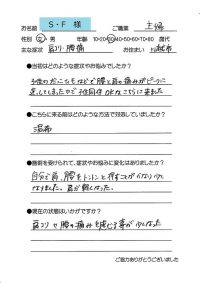 お名前 S・F 様 ご職業 主婦
性別 女・男 年齢 10・20・30・40・50・60・70・80 歳代
主な症状 肩コリ・腰痛 お住まい 上越市
●当初はどのような症状やお悩みでしたか？
子供のだっこなどで腰と肩の痛みがピークに
達してしまたので子供同伴OKなこちらに来ました
●こちらに来る前はどのような方法で対処していましたか？
湿布
●施術を受けられて、症状やお悩みに変化はありましたか？
自分で肩、腰をトントンと押すことがなり少なく
なりました。肩が軽くなった。
●現在の状態はいかがですか？
肩コリや腰の痛みを感じる事が少なった
ご協力ありがとうございました